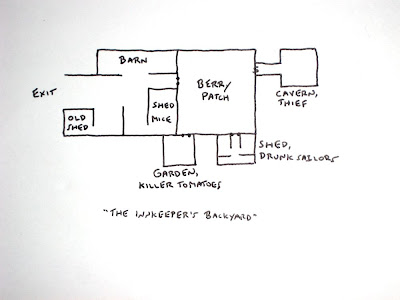 BARN
BERRY
PATCH
EXIT
SHED
MICE
OLD
SHED
CAVERN,
THIEF
SHED,
DRUNK SAILORS
GARDEN,
KILLER TOMATOES
"THE INNKEEPER'S BACKYARD"